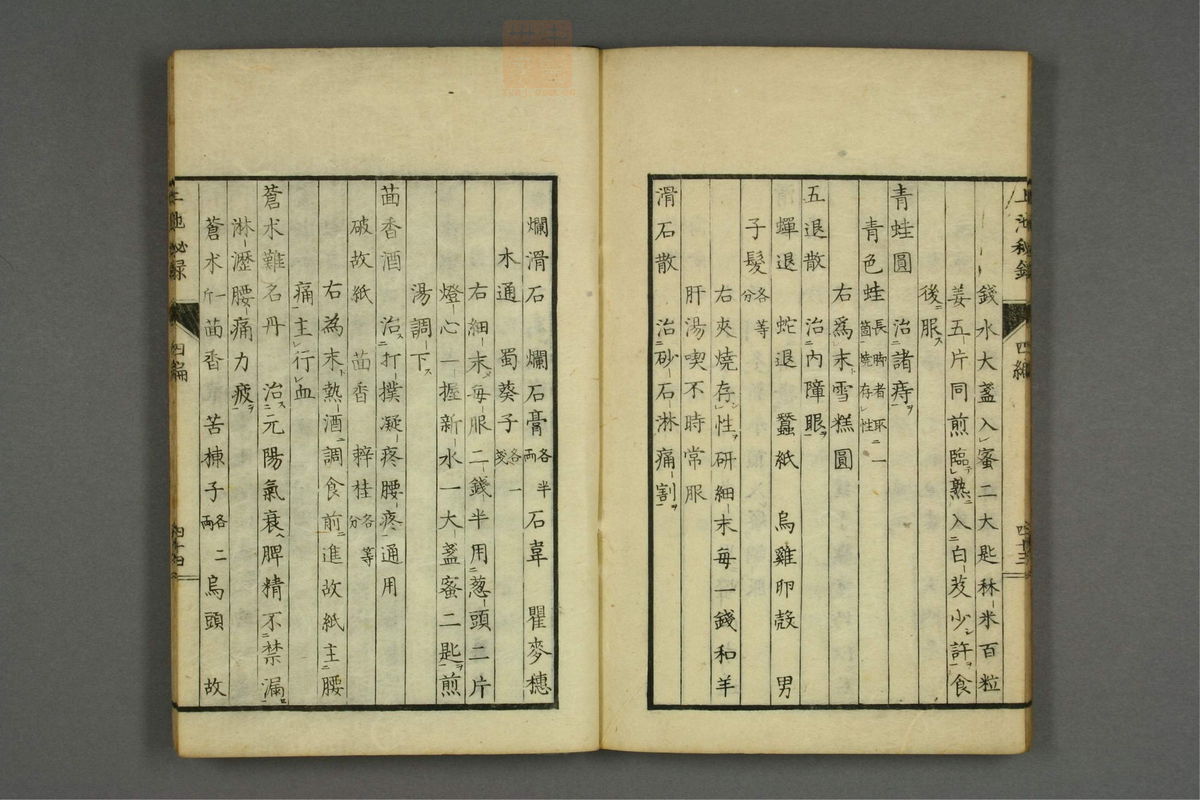 錢水大盞入蜜二大匙秫米百粒
姜五片同煎臨熟入白芨少許食
後服
青蛙圓 治諸痔
青色蛙長脚者一箇燒存性
右爲末雪糕圓
五退散 治內障眼
蟬退 蛇退 蠶紙 烏雞卵殻 男
子髮各等分
右夾燒存性研細末每一錢和羊
肝湯喫不時常服
滑石散 治砂石淋痛割
四編
爛滑石 爛石膏各半兩 石韋 瞿麥穗
木通 蜀葵子各一戔
右細末每服二錢半用葱頭二片
燈心一握新水一大盞蜜二匙煎
湯調下
茴香酒 治打撲凝疼腰疼通用
破故紙 茴香 辣桂各等分
右為末熱酒調食前進故紙主腰
痛主行血
蒼朮難名丹 治元陽氣衰脾精不禁漏
淋瀝腰痛力疲
蒼朮一斤 茴香 苦楝子各二兩 烏頭 故
四編